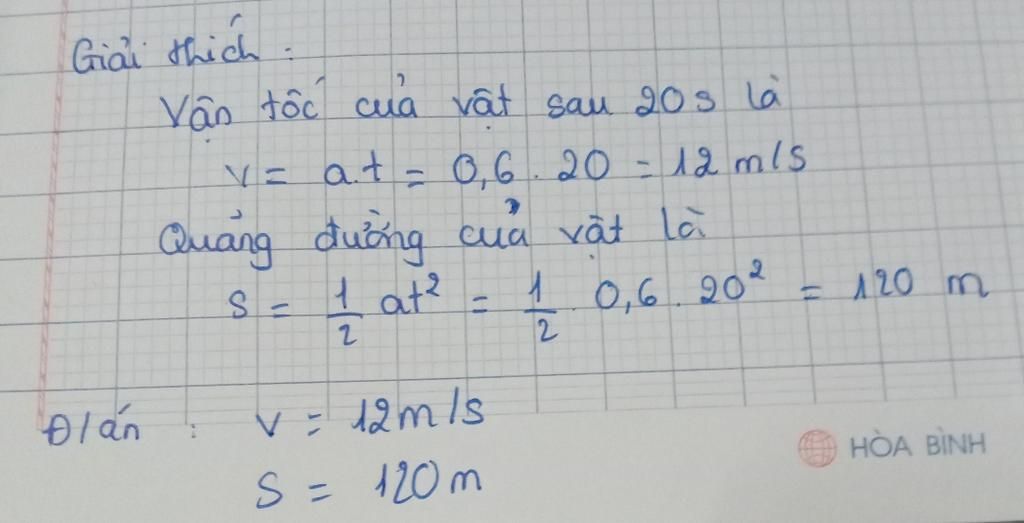 Giải thích :
Vận tốc của vật sau 20s là
v = a.t = 0,6 . 20 = 12 m/s
Quảng đường của vật là
s = 1/2 at² = 1/2 . 0,6 . 20² = 120 m
Đ/án : v = 12m/s
HÒA BÌNH
s = 120m